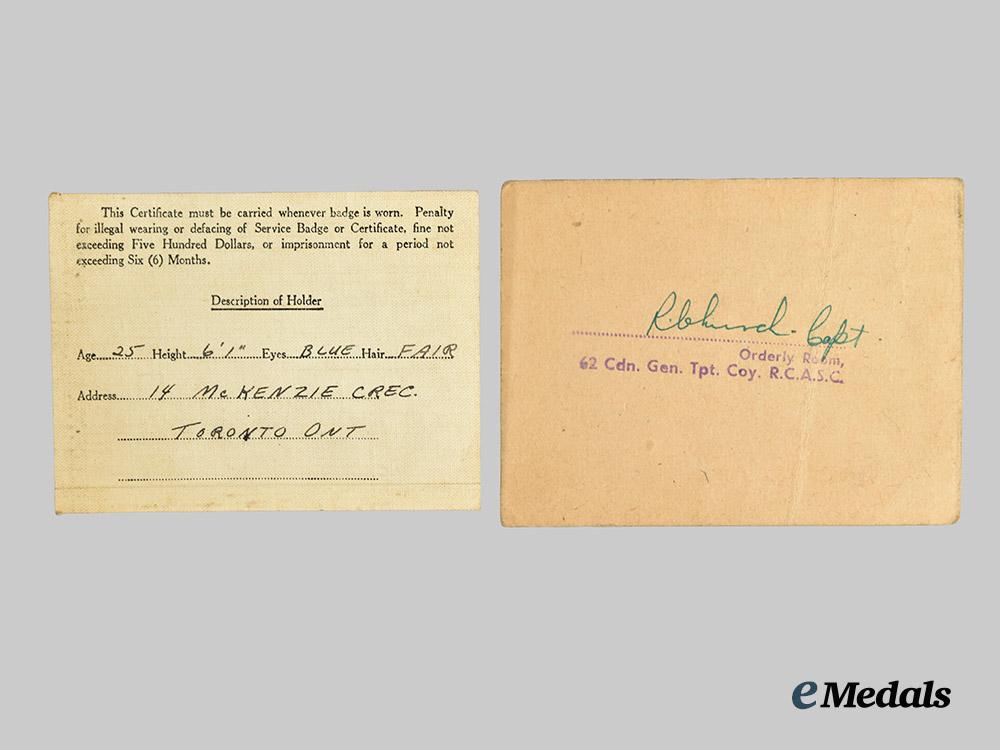 This Certificate must be carried whenever badge is worn. Penalty
for illegal wearing or defacing of Service Badge or Certificate, fine not
exceeding Five Hundred Dollars, or imprisonment for a period not
exceeding Six (6) Months.
Description of Holder
Age 25 Height 6'1" Eyes BLUE Hair FAIR
Address 14 McKENZIE CREC.
TORONTO ONT
Capt
Orderly Room,
62 Cdn. Gen. Tpt. Coy. R.C.A.S.C.
eMedals